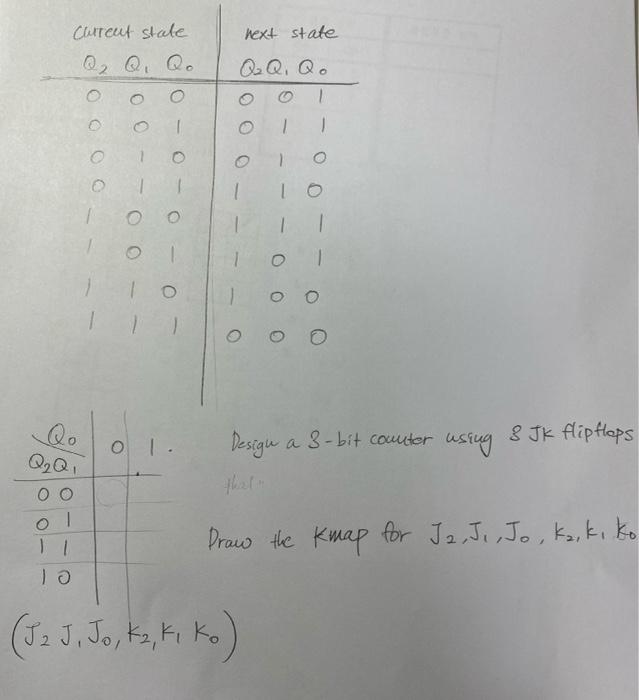 Current state next state
Q2 Q1 Q0 Q2 Q1 Q0
0 0 0 0 0 1
0 0 1 0 1 1
0 1 0 0 1 0
0 1 1 1 1 0
1 0 0 1 1 1
1 0 1 1 0 1
1 1 0 1 0 0
1 1 1 0 0 0
Q0
Q2Q1 0 1.
0 0
0 1
1 1
1 0
Design a 3-bit counter using 3 JK flipflops
that
Draw the Kmap for J2, J1, J0, K2, K1 K0
(J2 J1 J0, K2, K1 K0)